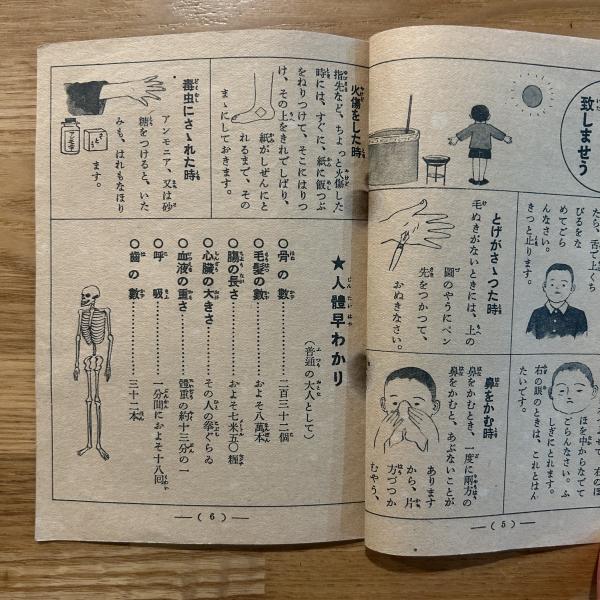 致しませう
たら、舌で上くち
びるをな
めてごら
んなさい。
きつと止ります。
とげがさゝつた時
毛ぬきがないときには、上の
圖のやうにペン
先をつかつて、
おぬきなさい。
ほを中からなでて
ごらんなさい。ふ
しぎにとれます。
右の眼のときは、これとはん
たいです。
鼻をかむ時
鼻をかむとき、一度に兩方の
鼻をかむと、あぶないことが
あります
から、片
方づつか
むやう、
—(5)—
火傷をした時
指先など、ちょっと火傷した
時には、すぐに、紙に飯つぶ
をねりつけて、そこにはりつ
け、その上をきれでしばり、
紙がしぜんにと
れるまで、その
まゝにしておきます。
毒虫にさゝれた時
アンモニア、又は砂
糖をつけると、いた
みも、はれもなほり
ます。
★人體早わかり
(普通の大人として)
○骨の數…………二百三十二個
○毛髪の數…………およそ八萬本
○腸の長さ…………およそ七米五〇糎
○心臓の大きさ…………その人の拳ぐらゐ
○血液の重さ…………體重の約十三分の一
○呼吸…………一分間におよそ十八回
○齒の數…………三十二本
—(6)—